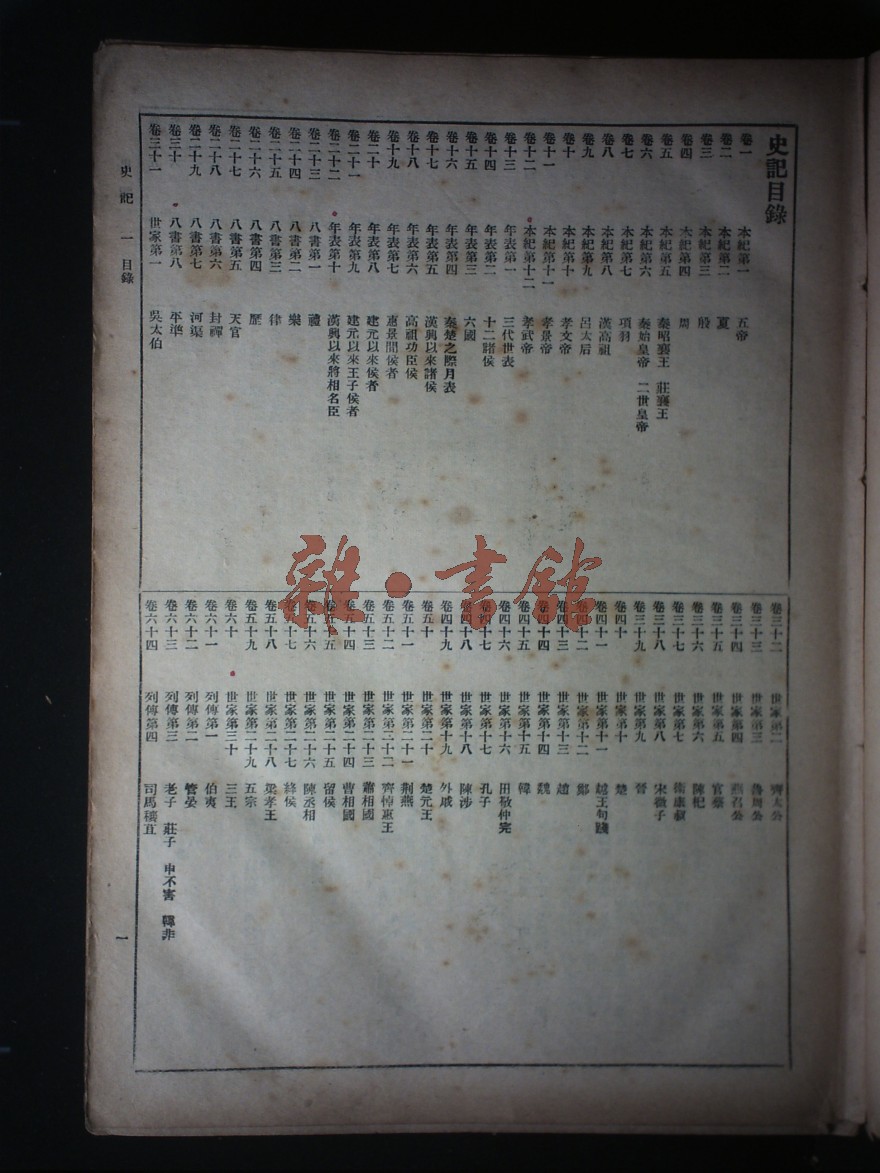 史記目錄
卷一 本紀第一 五帝
卷二 本紀第二 夏
卷三 本紀第三 殷
卷四 本紀第四 周
卷五 本紀第五 秦昭襄王 莊襄王
卷六 本紀第六 秦始皇帝 二世皇帝
卷七 本紀第七 項羽
卷八 本紀第八 漢高祖
卷九 本紀第九 呂太后
卷十 本紀第十 孝文帝
卷十一 本紀第十一 孝景帝
卷十二 本紀第十二 孝武帝
卷十三 年表第一 三代世表
卷十四 年表第二 十二諸侯
卷十五 年表第三 六國
卷十六 年表第四 秦楚之際月表
卷十七 年表第五 漢興以來諸侯
卷十八 年表第六 高祖功臣侯
卷十九 年表第七 惠景間侯者
卷二十 年表第八 建元以來侯者
卷二十一 年表第九 建元以來王子侯者
卷二十二 年表第十 漢興以來將相名臣
卷二十三 八書第一 禮
卷二十四 八書第二 樂
卷二十五 八書第三 律
卷二十六 八書第四 歷
卷二十七 八書第五 天官
卷二十八 八書第六 封禪
卷二十九 八書第七 河渠
卷三十 八書第八 平準
卷三十一 世家第一 吳太伯
卷三十二 世家第二 齊太公
卷三十三 世家第三 魯周公
卷三十四 世家第四 燕召公
卷三十五 世家第五 管蔡
卷三十六 世家第六 陳杞
卷三十七 世家第七 衞康叔
卷三十八 世家第八 宋微子
卷三十九 世家第九 晉
卷四十 世家第十 楚
卷四十一 世家第十一 越王句踐
卷四十二 世家第十二 鄭
卷四十三 世家第十三 趙
卷四十四 世家第十四 魏
卷四十五 世家第十五 韓
卷四十六 世家第十六 田敬仲完
卷四十七 世家第十七 孔子
卷四十八 世家第十八 陳涉
卷四十九 世家第十九 外戚
卷五十 世家第二十 楚元王
卷五十一 世家第二十一 荆燕
卷五十二 世家第二十二 齊悼惠王
卷五十三 世家第二十三 蕭相國
卷五十四 世家第二十四 曹相國
卷五十五 世家第二十五 留侯
卷五十六 世家第二十六 陳丞相
卷五十七 世家第二十七 絳侯
卷五十八 世家第二十八 梁孝王
卷五十九 世家第二十九 五宗
卷六十 世家第三十 三王
卷六十一 列傳第一 伯夷
卷六十二 列傳第二 管晏
卷六十三 列傳第三 老子 莊子 申不害 韓非
卷六十四 列傳第四 司馬穰苴
史記 一 目錄
一
雜·書館